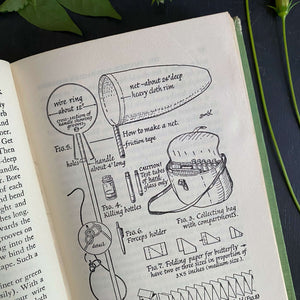 wire ring
about 15"
cross-section of
handle showing
grooves
net—about 26" deep
heavy cloth rim
FIG. 5.
hole
How to make a net.
friction tape
handle
about 4' long
CAUTION!
Test tubes
of hard
glass only
FIG. 4.
Killing bottles
FIG. 3. Collecting bag
with compartments.
FIG. 6.
Forceps holder
FIG. 7. Folding paper for butterfly
have two or three sizes in proportion
3 x 5 inches (medium size).
Get
Then
deep
of each
end
wards the
rooves on
ng into the
ape. Such a
iner or green
ly). With a
your wire